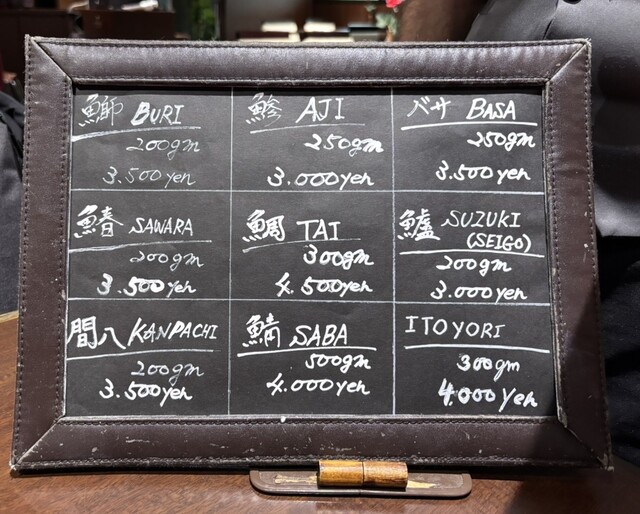 鰤 BURI
200gm
3.500yen
鯵 AJI
250gm
3.000yen
バサ BASA
250gm
3.500yen
鰆 SAWARA
200gm
3.500yen
鯛 TAI
300gm
4.500yen
鱸 SUZUKI
(SEIGO)
200gm
3.000yen
間八 KANPACHI
200gm
3.500yen
鯖 SABA
500gm
4.000yen
ITOYORI
300gm
4.000yen